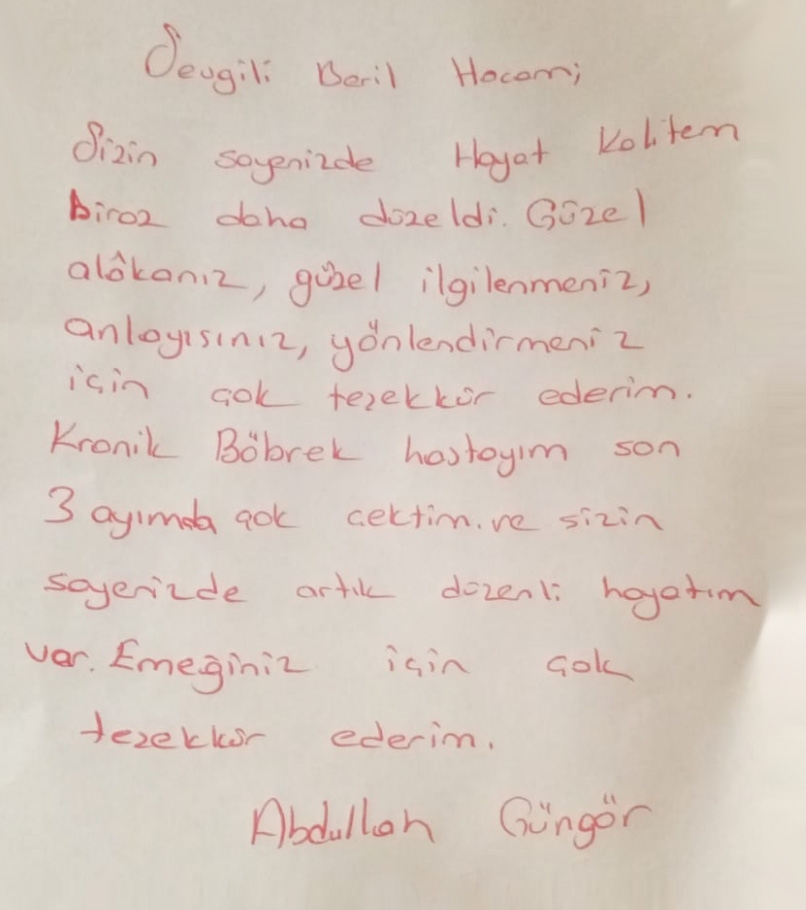 Sevgili Beril Hocam;
Sizin sayenizde Hayat Kalitem
biraz daha düzeldi. Güzel
alâkanız, güzel ilgilenmeniz,
anlayısınız, yönlendirmeniz
için çok teşekkür ederim.
Kronik Böbrek hastayım son
3 ayımda çok çektim. ve sizin
sayenizde artık düzenli hayatım
var. Emeğiniz için çok
teşekkür ederim.
Abdullah Güngör